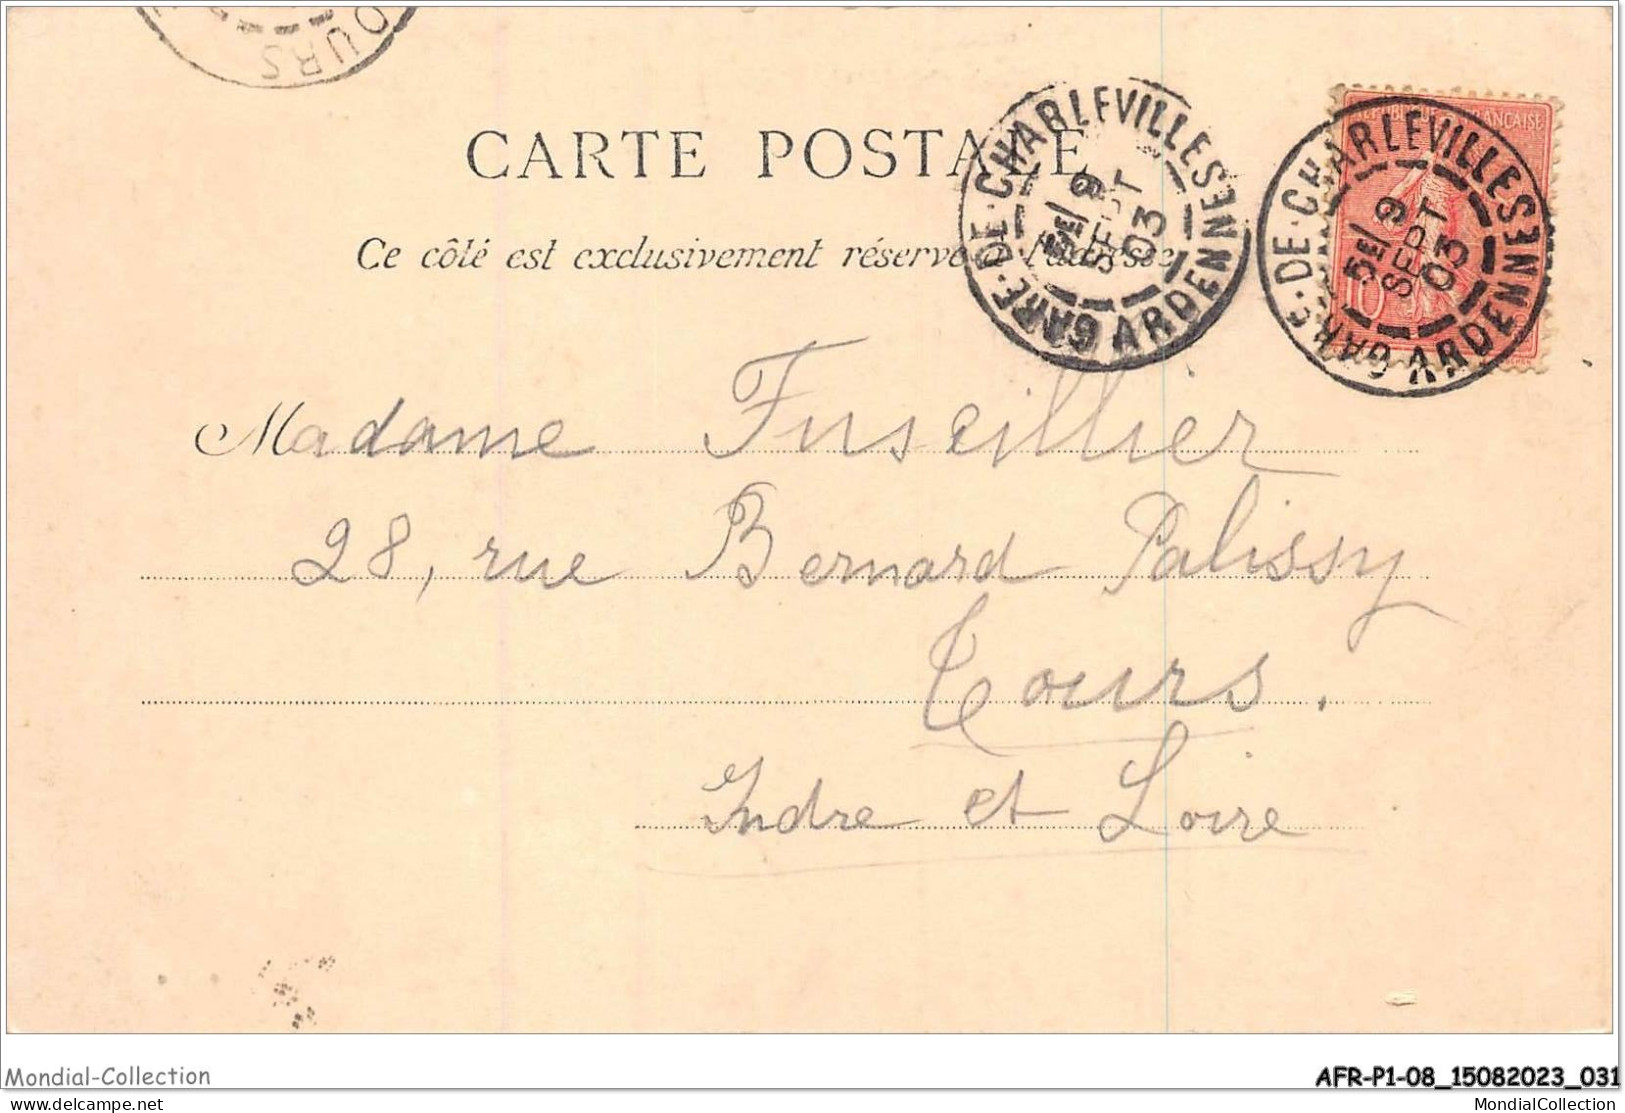 TOURS
CARTE POSTALE
Ce côté est exclusivement réservé à l'adresse
GARE·DE·CHARLEVILLE ARDENNES
5E/ 9
SEPT
03
RÉPUBLIQUE FRANÇAISE
10
GARE·DE·CHARLEVILLE ARDENNES
5E/ 9
SEPT
03
Madame Fuseillier
28, rue Bernard Palissy
Tours.
Indre et Loire
Mondial-Collection
AFR-P1-08_15082023_031
delcampe.net
MondialCollection